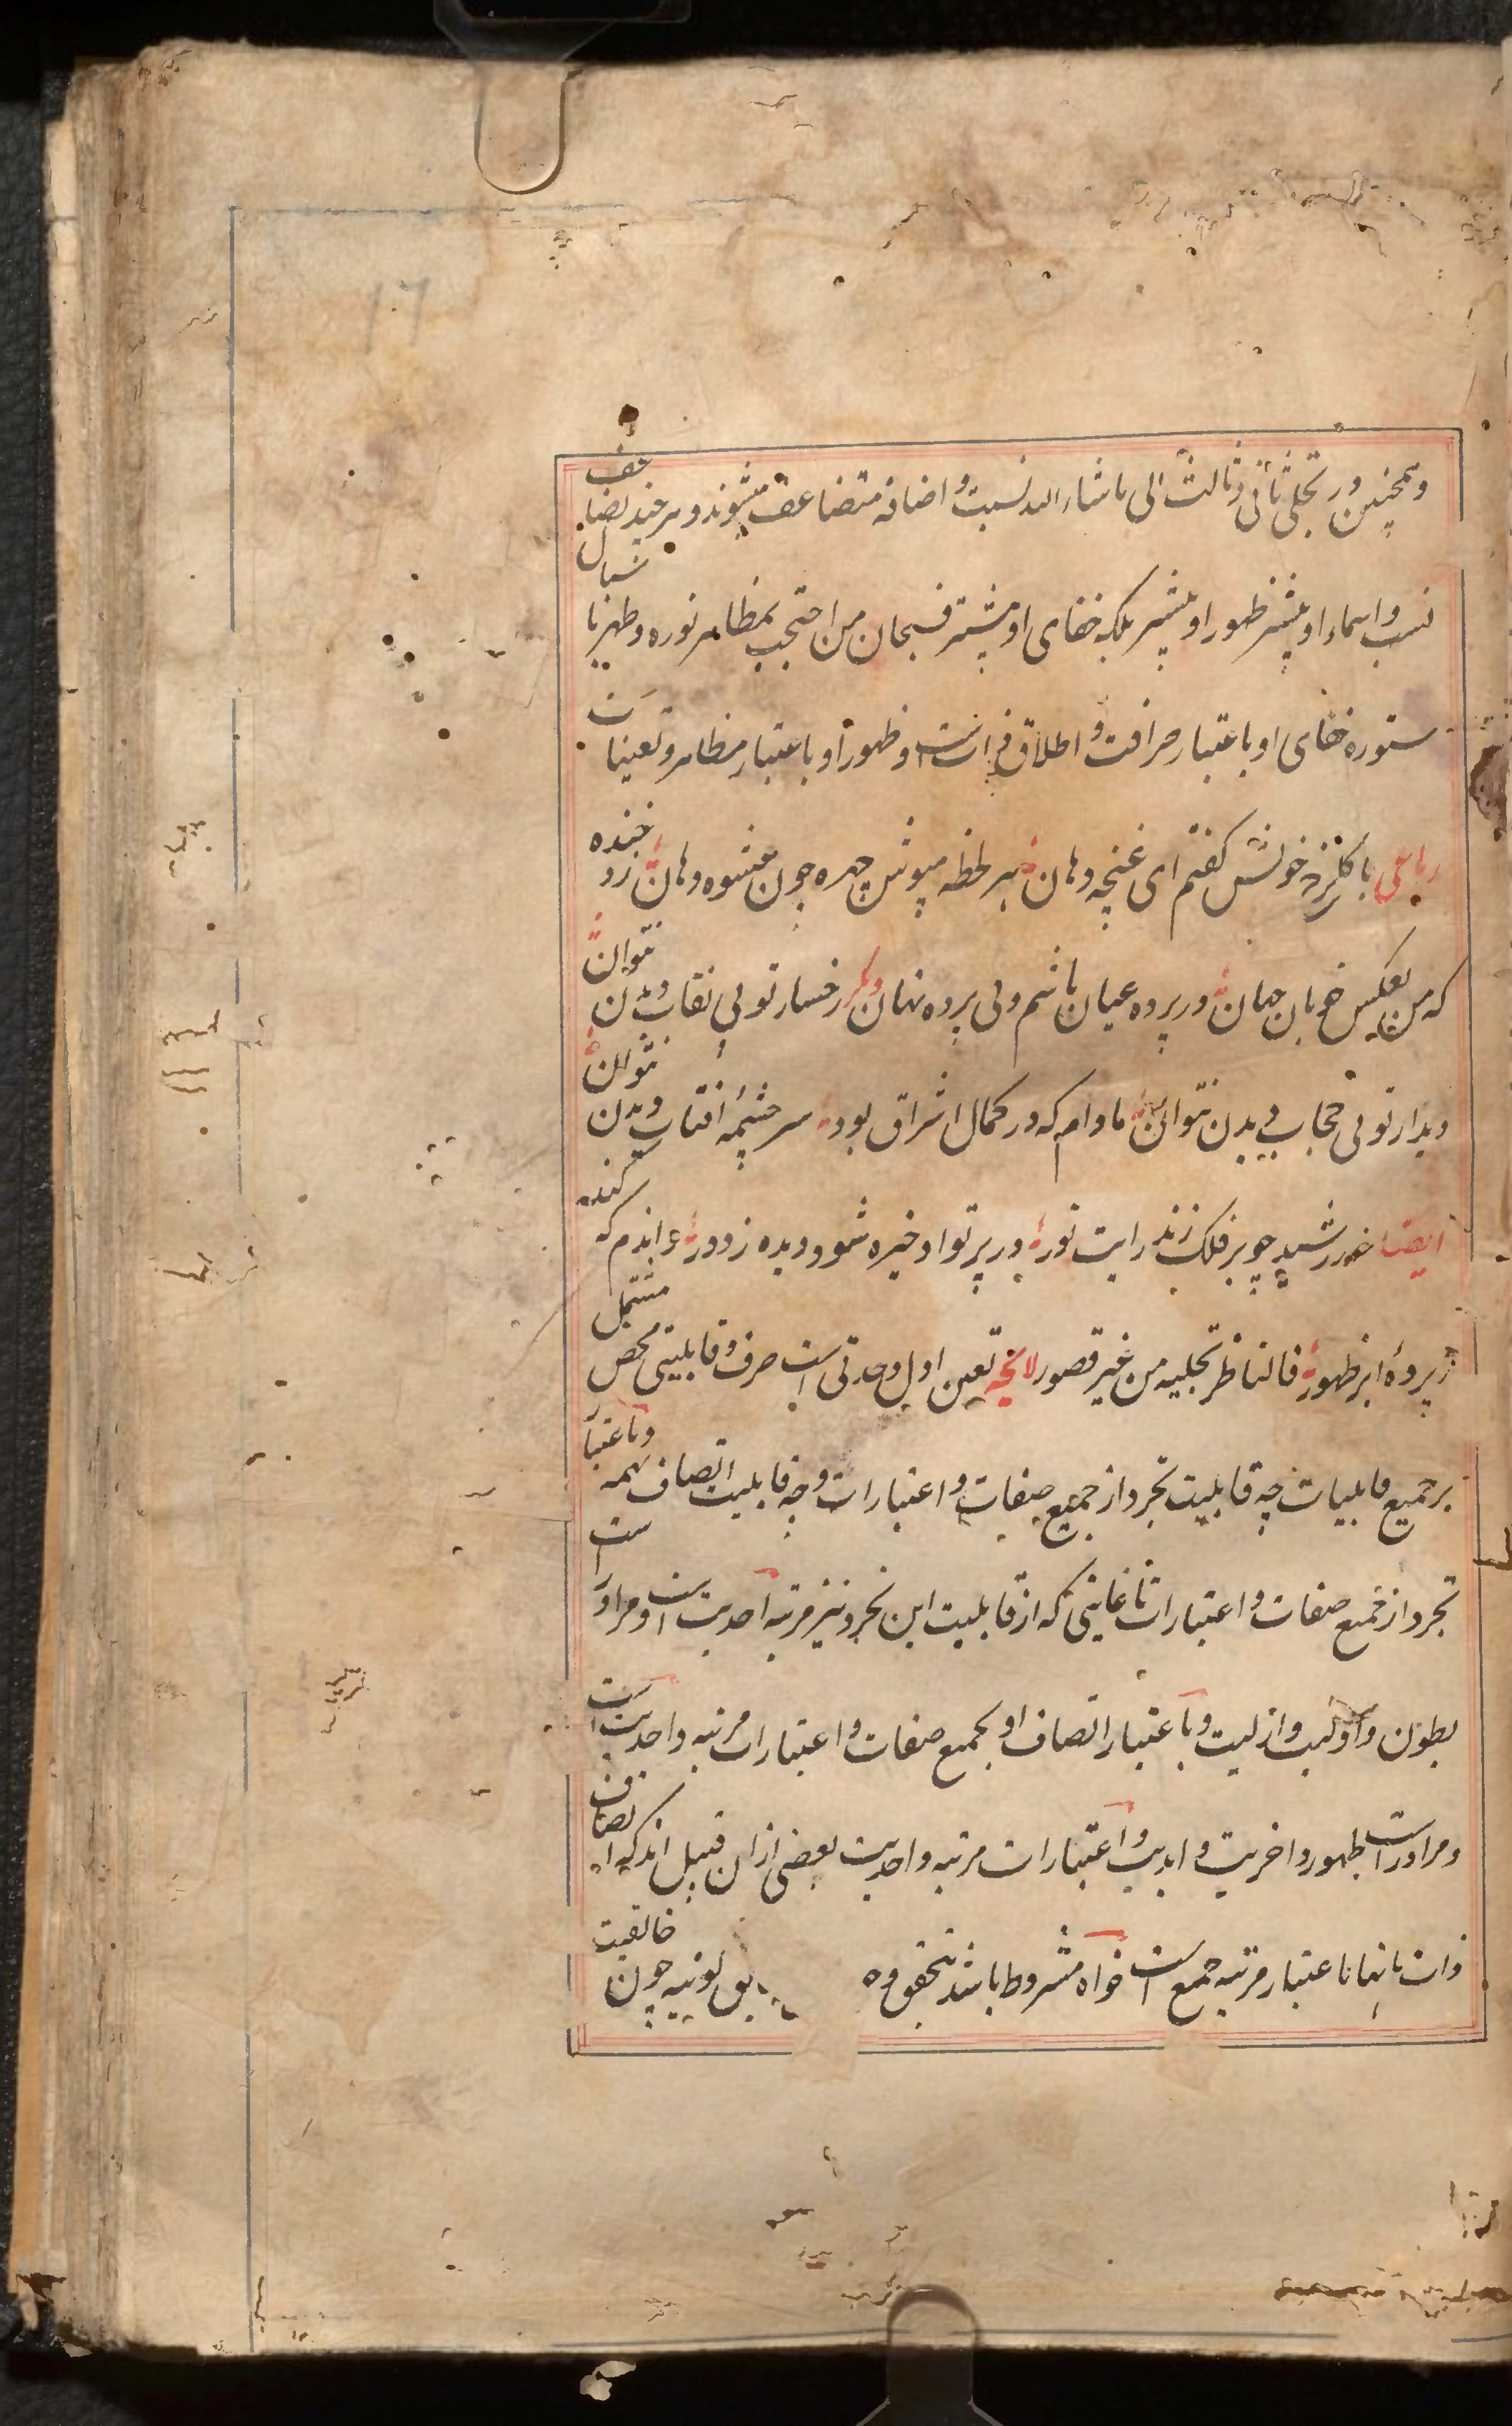 وهمچنین در تجلی ثانی و ثالث الی ماشاء الله نسبت و اضافه متضاعف میشوند و هر چند تضاعف
نسب و اسماء او بیشتر ظهور او بیشتر بلکه خفای او بیشتر فسبحان من احتجب بمظاهر نوره و ظهر باسبال
ستوره خفای او باعتبار صرافت و اطلاق ذات است و ظهور او باعتبار مظاهر و تعینات
رباعی با گلرخ خویش گفتم ای غنچه دهان هر لحظه مپوش چهره چون عشوه دهان زد خنده
که من بعکس خوبان جهان در پرده عیان باشم و بی پرده نهان دیگر رخسار تو بی نقاب دیدن نتوان
دیدار تو بی حجاب دیدن نتوان مادام که در کمال اشراق بود سرچشمه آفتاب دیدن نتوان
ایضا خورشید چو بر فلک زند رایت نور در پرتو او خیره شود دیده ز دور واندم که کند
ز پردۀ ابر ظهور فالناظر تجلیه من غیر قصور لایحه تعین اول وحدتی است صرف و قابلیتی محض مشتمل
بر جمیع قابلیات چه قابلیت تجرد از جمیع صفات و اعتبارات و چه قابلیت اتصاف بهمه و باعتبار
تجرد از جمیع صفات و اعتبارات تا غایتی که از قابلیت این تجرد نیز مرتبه احدیت است و مراوراست
بطون و اولیت و ازلیت و باعتبار اتصاف او بجمیع صفات و اعتبارات مرتبه واحدیت است
و مراوراست ظهور و اخریت و ابدیت و اعتبارات مرتبه واحدیت بعضی ازان قبیل اند که اتصاف
ذات بانها باعتبار مرتبه جمع است خواه مشروط باشد بتحقق وجو یق کونیه چون خالقیت